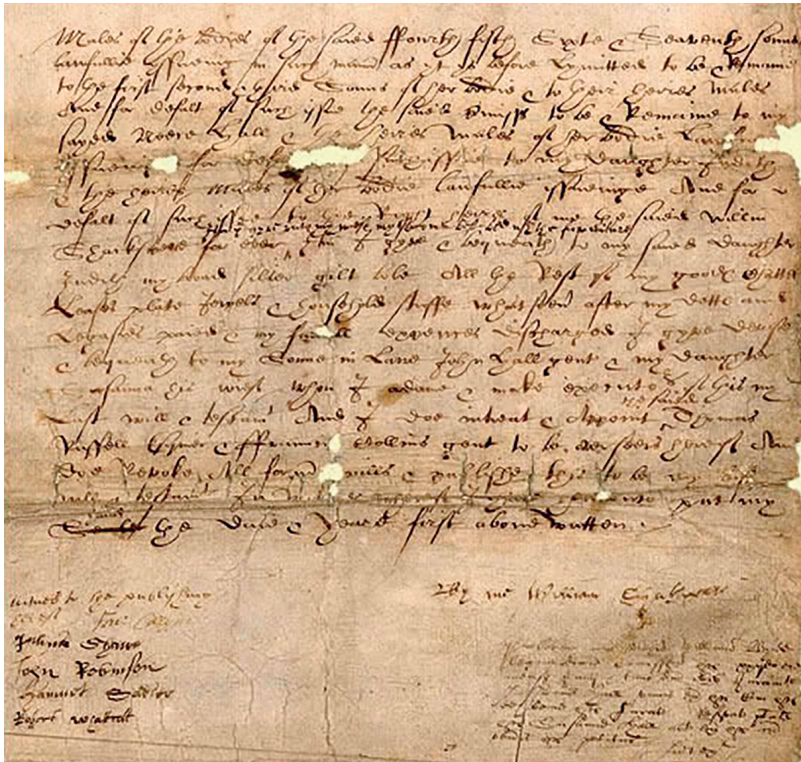 Males of the bodies of the saied ffourth fifth Sixte & Seaventh sonnes
lawfullie yssueing in such mannr as yt ys before Lymitted to be & Remaine
to the first second & third Sonns of her bodie & to their heires Males
And for defalt of such issue the saied prmisss to be & Remaine to my
sayed Neece Hall & the heires Males of her bodie Lawfullie
yssueing for defalt such issue to my daughter Judith
& the heires Males of her bodie lawfullie issueinge And for
defalt of such issue to the Right heires of me the saied Willm
Itm I gyve unto my wief my second best bed wth the furniture
Shackspere for ever Itm I gyve & bequeath to my saied daughter
Judith my broad silver gilt bole All the Rest of my goods Chattels
Leases plate Jewels & household stuffe whatsoevr after my detts and
Legasies paied & my funerall expences discharged I gyve devise
& bequeath to my Sonne in Lawe John Hall gent & my daughter
Susanna his wief whom I ordaine & make executors of this my
the saied
Last will & testamt And I doe intreat & Appoint Thomas
Russell Esquier & ffrauncis Collins gent to be overseers herof And
doe Revoke All former wills & publishe this to be my last
will & testamt In witnes whereof I have hereunto put my
hand
Seale the Daie & Yeare first above Written
witnes to the publishing
hereof Fra: Collyns
Julius Shawe
John Robinson
Hamnet Sadler
Robert Whattcott
By me William Shakspeare